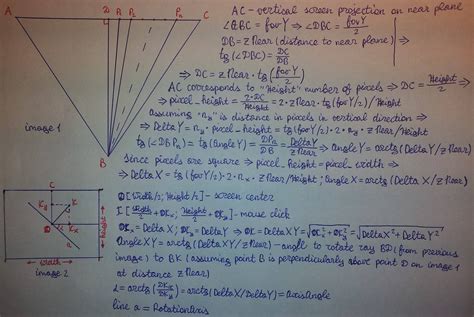 A D P₁ P₂ Pₙ C
AC - vertical screen projection on near plane
∠ABC = fovY ⇒ ∠DBC = fovY/2
DB = zNear (distance to near plane) ⇒
tg(∠DBC) = DC/DB
⇒ DC = zNear · tg(fovY/2)
AC corresponds to "Height" number of pixels ⇒ DC = Height/2 ⇒
⇒ pixel_height = 2·DC/Height = 2·zNear·tg(fovY/2)/Height
assuming "ny" is distance in pixels in vertical direction ⇒
⇒ DeltaY = ny · pixel_height = tg(fovY/2)·2·ny·zNear/Height
image 1
tg(∠DBPn) = tg(AngleY) = DPn/DB = DeltaY/zNear ⇒ AngleY = arctg(DeltaY/zNear)
B
Since pixels are square ⇒ pixel_height = pixel_width ⇒
⇒ DeltaX = tg(fovY/2)·2·nx·zNear/Height; AngleX = arctg(DeltaX/zNear)
C
D[Width/2; Height/2] - screen center
K
- mouse click
height
a
width
image 2
AngleXY = arctg(DeltaXY/zNear) - angle to rotate ray BD (from previous
image) to BK (assuming point B is perpendicularly above point D on image 1
at distance zNear)
= arctg(DeltaX/DeltaY) = AxisAngle
line a = RotationAxis